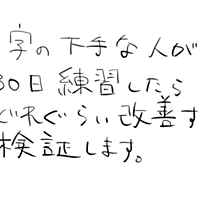 字の下手な人が
30日練習したら
どれぐらい改善す
検証します。